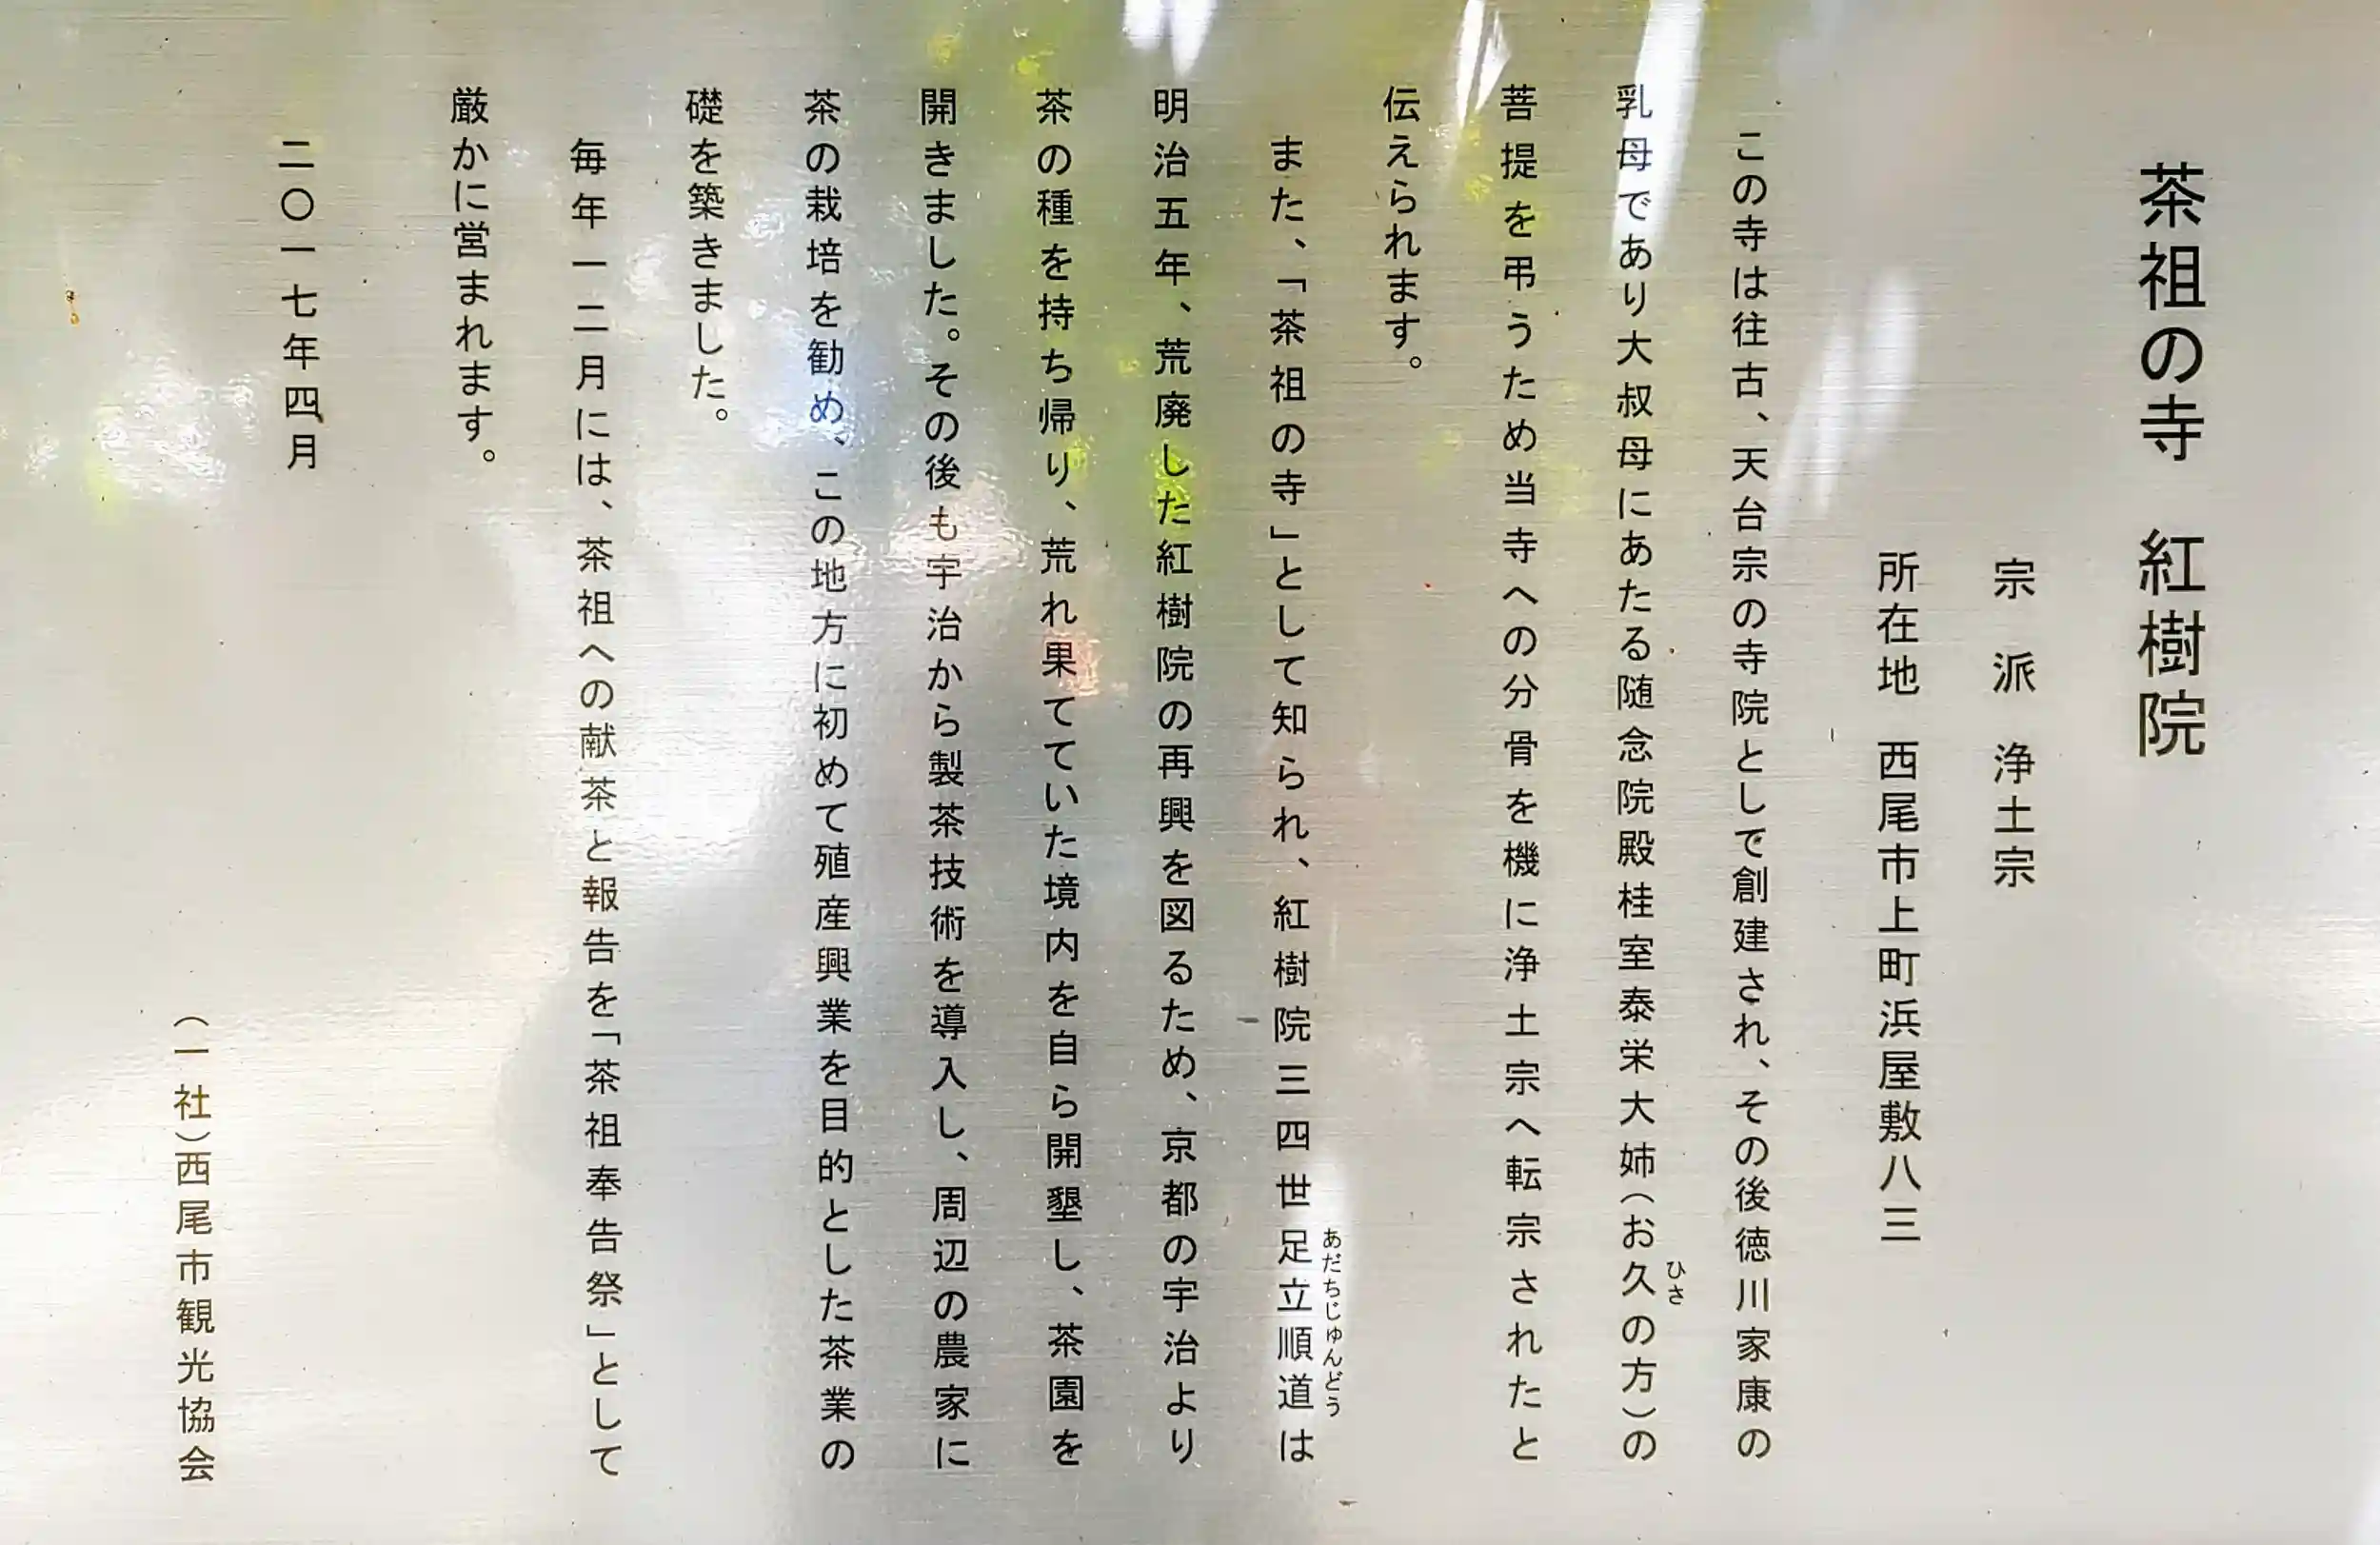 茶祖の寺　紅樹院
宗　派　浄土宗
所在地　西尾市上町浜屋敷八三
この寺は往古、天台宗の寺院として創建され、その後徳川家康の
乳母であり大叔母にあたる随念院殿桂室泰栄大姉（お久の方）の
ひさ
菩提を弔うため当寺への分骨を機に浄土宗へ転宗されたと
伝えられます。
また、「茶祖の寺」として知られ、紅樹院三四世足立順道は
あだちじゅんどう
明治五年、荒廃した紅樹院の再興を図るため、京都の宇治より
茶の種を持ち帰り、荒れ果てていた境内を自ら開墾し、茶園を
開きました。その後も宇治から製茶技術を導入し、周辺の農家に
茶の栽培を勧め、この地方に初めて殖産興業を目的とした茶業の
礎を築きました。
毎年一二月には、茶祖への献茶と報告を「茶祖奉告祭」として
厳かに営まれます。
二〇一七年四月
（一社）西尾市観光協会